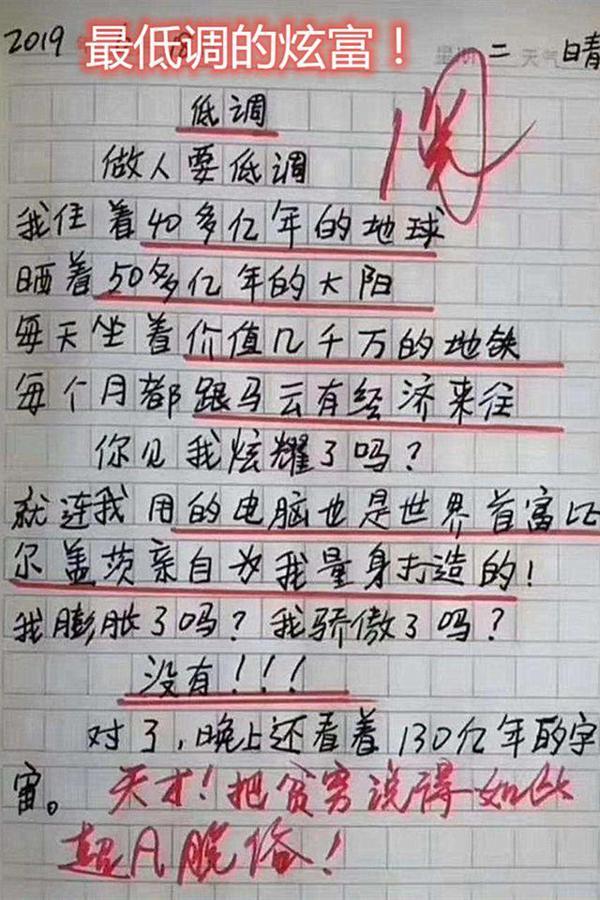 2019
最低调的炫富！
星期二 天气 晴
阅
低调
做人要低调
我住着40多亿年的地球
晒着50多亿年的太阳
每天坐着价值几千万的地铁
每个月都跟马云有经济来往
你见我炫耀了吗？
就连我用的电脑也是世界首富比
尔盖茨亲自为我量身打造的！
我膨胀了吗？我骄傲了吗？
没有！！！
对了，晚上还看着130亿年的宇
宙。天才！把贫穷说得如此
超凡脱俗！